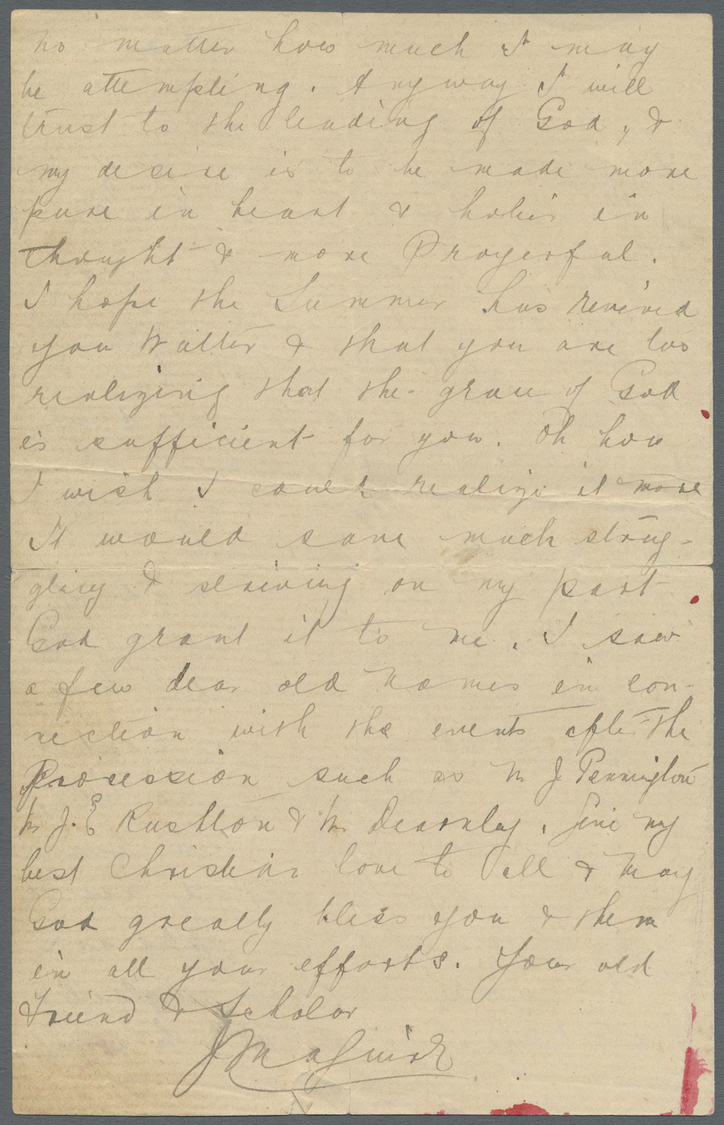 no matter how much I may
be attempting. Anyway I will
trust to the leading of God, &
my desire is to be made more
pure in heart & holier in
thought & more Prayerful.
I hope the Summer has revived
you Walter & that you are too
realizing that the grace of God
is sufficient for you. Oh how
I wish I could realize it more
It would save much strug-
gling & striving on my part
God grant it to me. I saw
a few dear old names in con-
nection with the events after the
Procession such as Mr J Pennington
Mr J. E Rushton & Mr Dearnley. Give my
best Christian love to all & may
God greatly bless you & them
in all your efforts. Your old
friend & Scholar
J